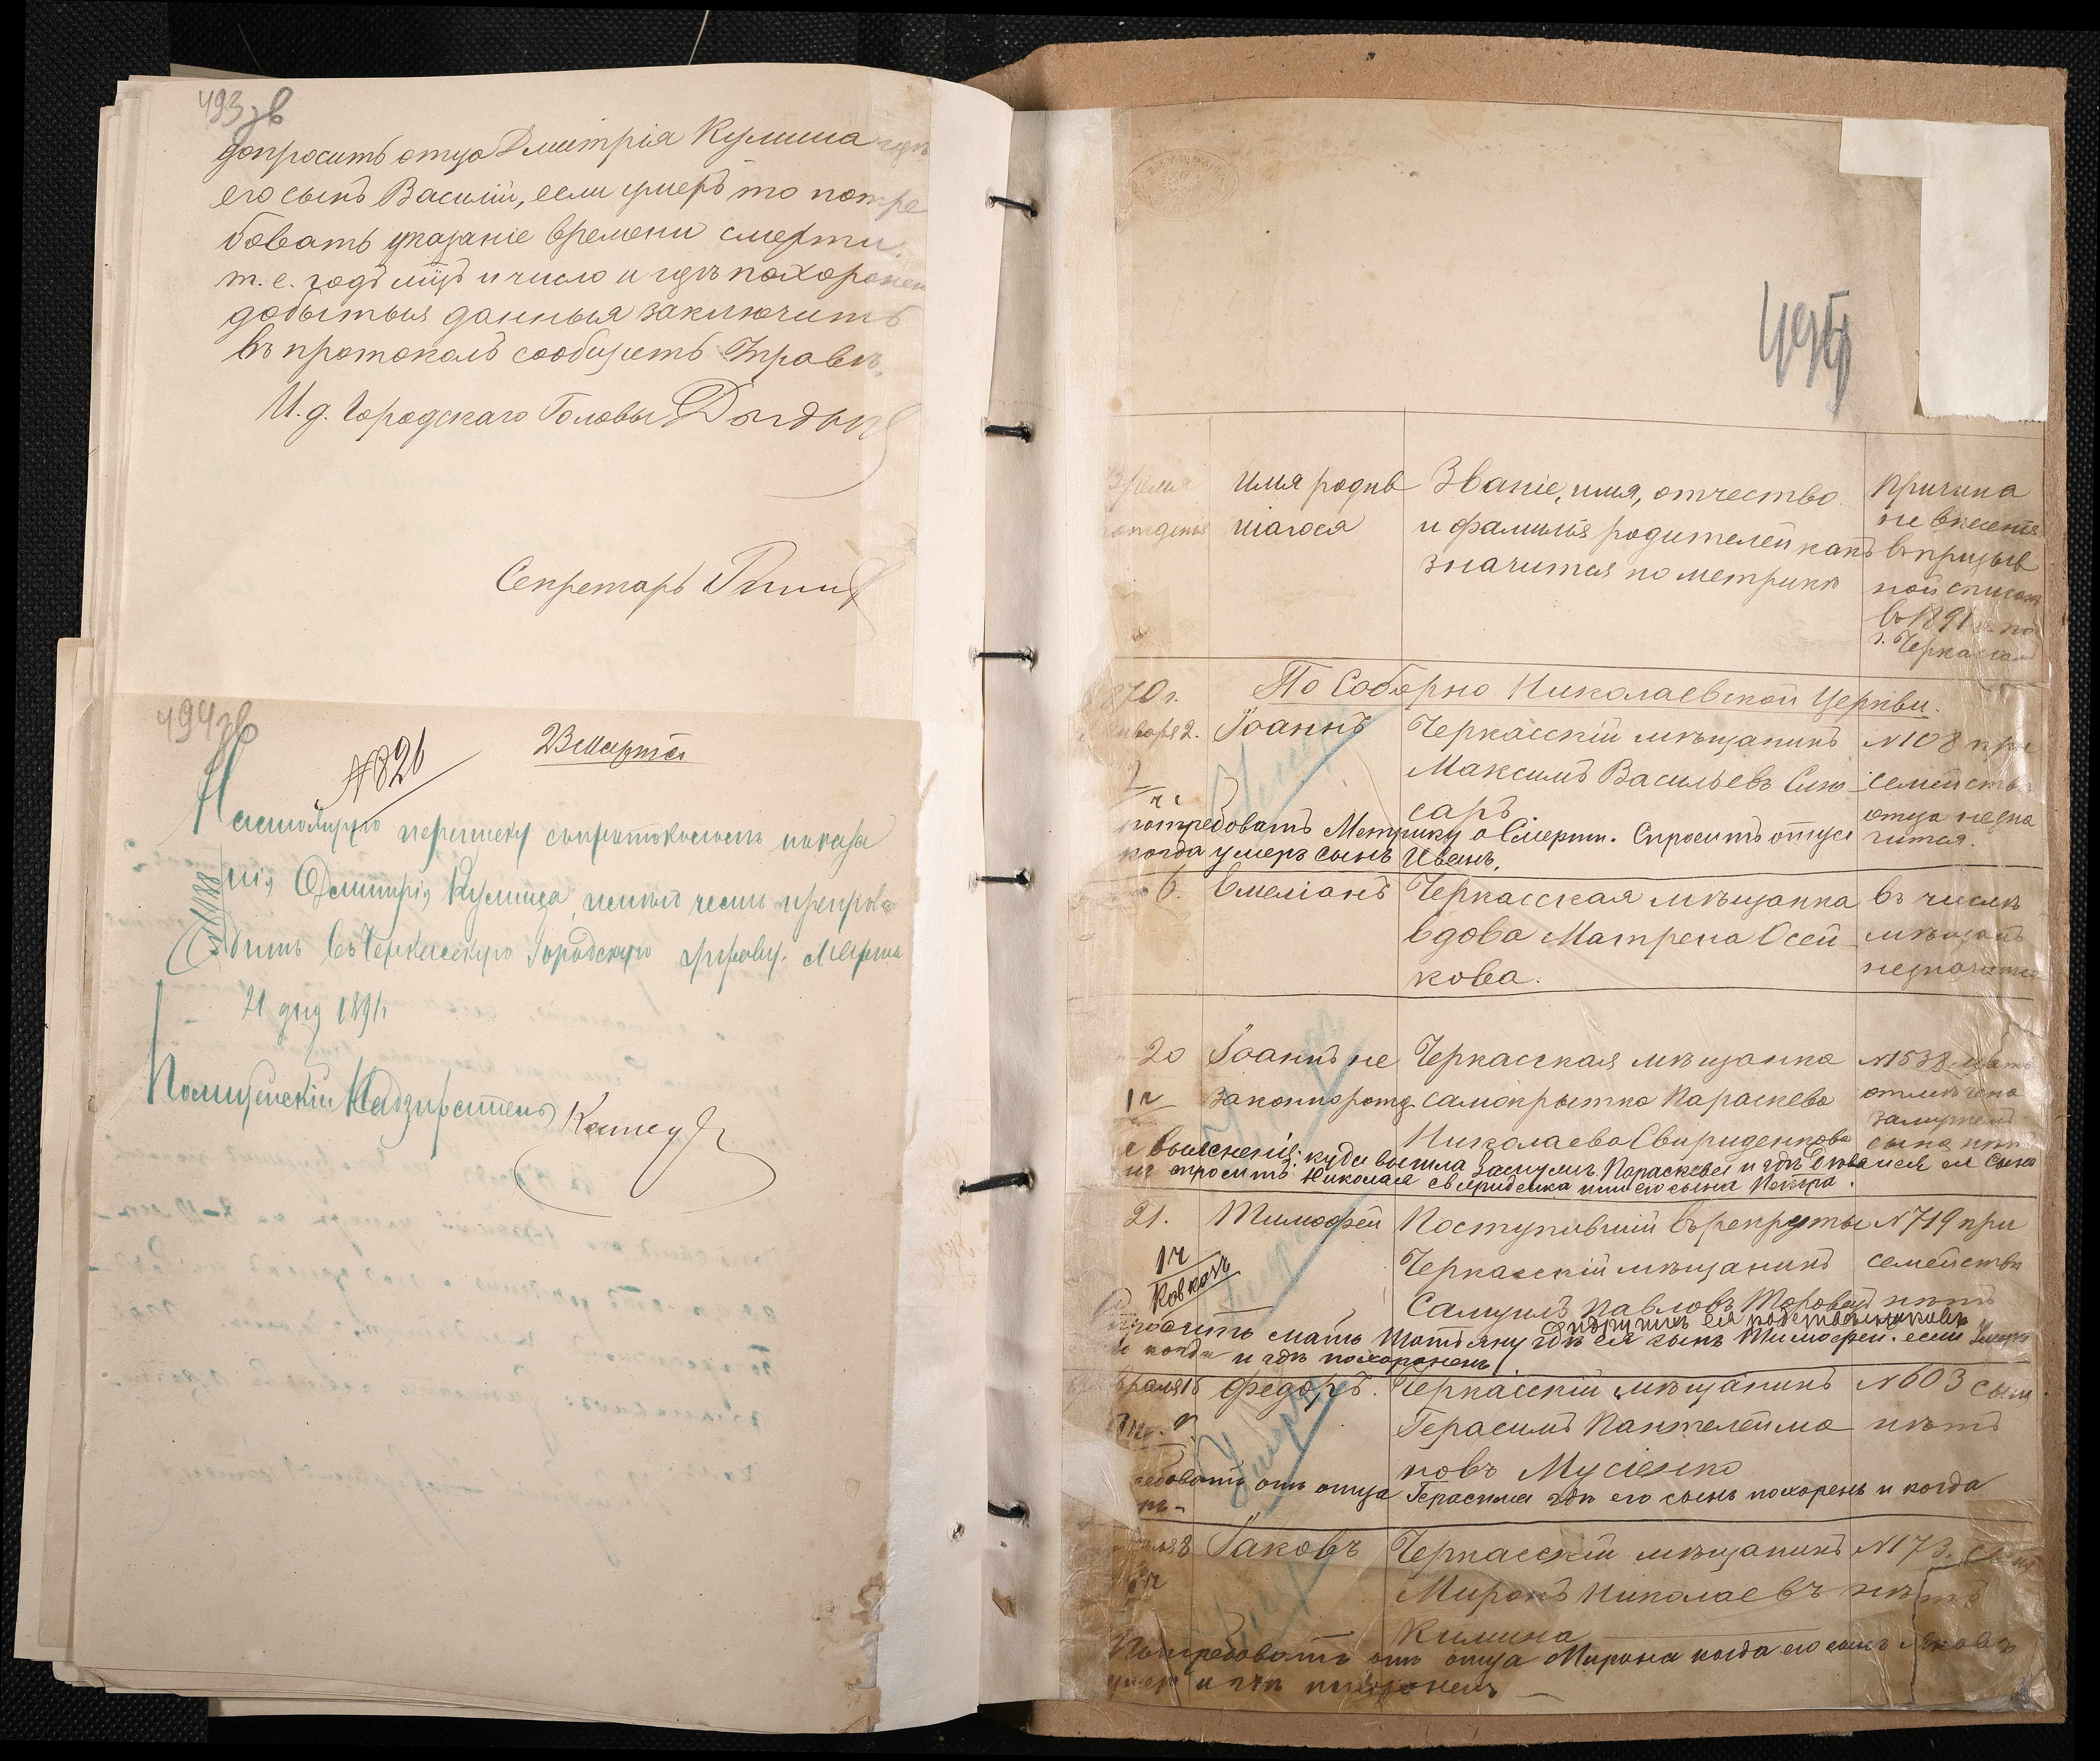 493 зв
допросить отца Дмитрія Кулиша где
его сынъ Василій, если умеръ то потре
бовать указаніе времени смерти,
т. е. годъ мѣц и число и гдѣ похоронен
добытыя данныя заключить
въ протоколъ сообщить Управѣ.
И. д. Городскаго Головы
Секретарь
494 зв
№ 821
23 Марта
Настоящую переписку съ протоколомъ показа
нія Дмитрія Кулиша, имѣю честь препрово
дить въ Черкасскую Городскую Управу. Марта
21 дня 1891 г.
Полицейскій Надзиратель
495
Время
рожденія
Имя родив
шагося
Званіе, имя, отчество
и фамилія родителей какъ
значится по метрикѣ
Причина
не внесенія
въ призыв
ной списокъ
въ 1891 г. по
г. Черкассам
1870 г.
По Соборно Николаевской Церкви.
Января 2.
Іоаннъ
Черкасскій мѣщанинъ
Максимъ Васильевъ Слю
сарь
№ 108 при
семействѣ
отца не зна
чится.
потребовать Метрику о Смерти. Спросить отца
когда умеръ сынъ Иванъ.
6.
Емеліанъ
Черкасская мѣщанка
вдова Матрена Осей
кова.
въ числѣ
мѣщанъ
не значится
20
Іоаннъ не
законнорожд.
Черкасская мѣщанка
самокрытка Параскева
Николаева Свириденкова
№ 1538 мать
отмѣчена
замужем
сына нѣтъ
выясненія: куда вышла замужъ Параскевья и гдѣ дѣвался ея сынъ
спросить Николая Свириденка или его сына Петра.
21.
Тимофей
Поступившій въ рекруты
Черкасскій мѣщанинъ
Самуилъ Павловъ
№ 719 при
семействѣ
нѣтъ
1 ч
Кавказъ
спросить мать Татьяну гдѣ ея сынъ Тимофей. если умеръ
то когда и гдѣ похороненъ
Февраля 15
Федоръ.
Черкасскій мѣщанинъ
Герасимъ Пантелеймо
новъ Мусіенко
№ 603 сына
нѣтъ
требовать отъ отца Герасима гдѣ его сынъ похоренъ и когда
8
Іаковъ
Черкасскій мѣщанинъ
Миронъ Николаевъ
Килина
№ 173.
нѣтъ
Потребовать отъ отца Мирона когда его сынъ Яковъ
умеръ и гдѣ похороненъ